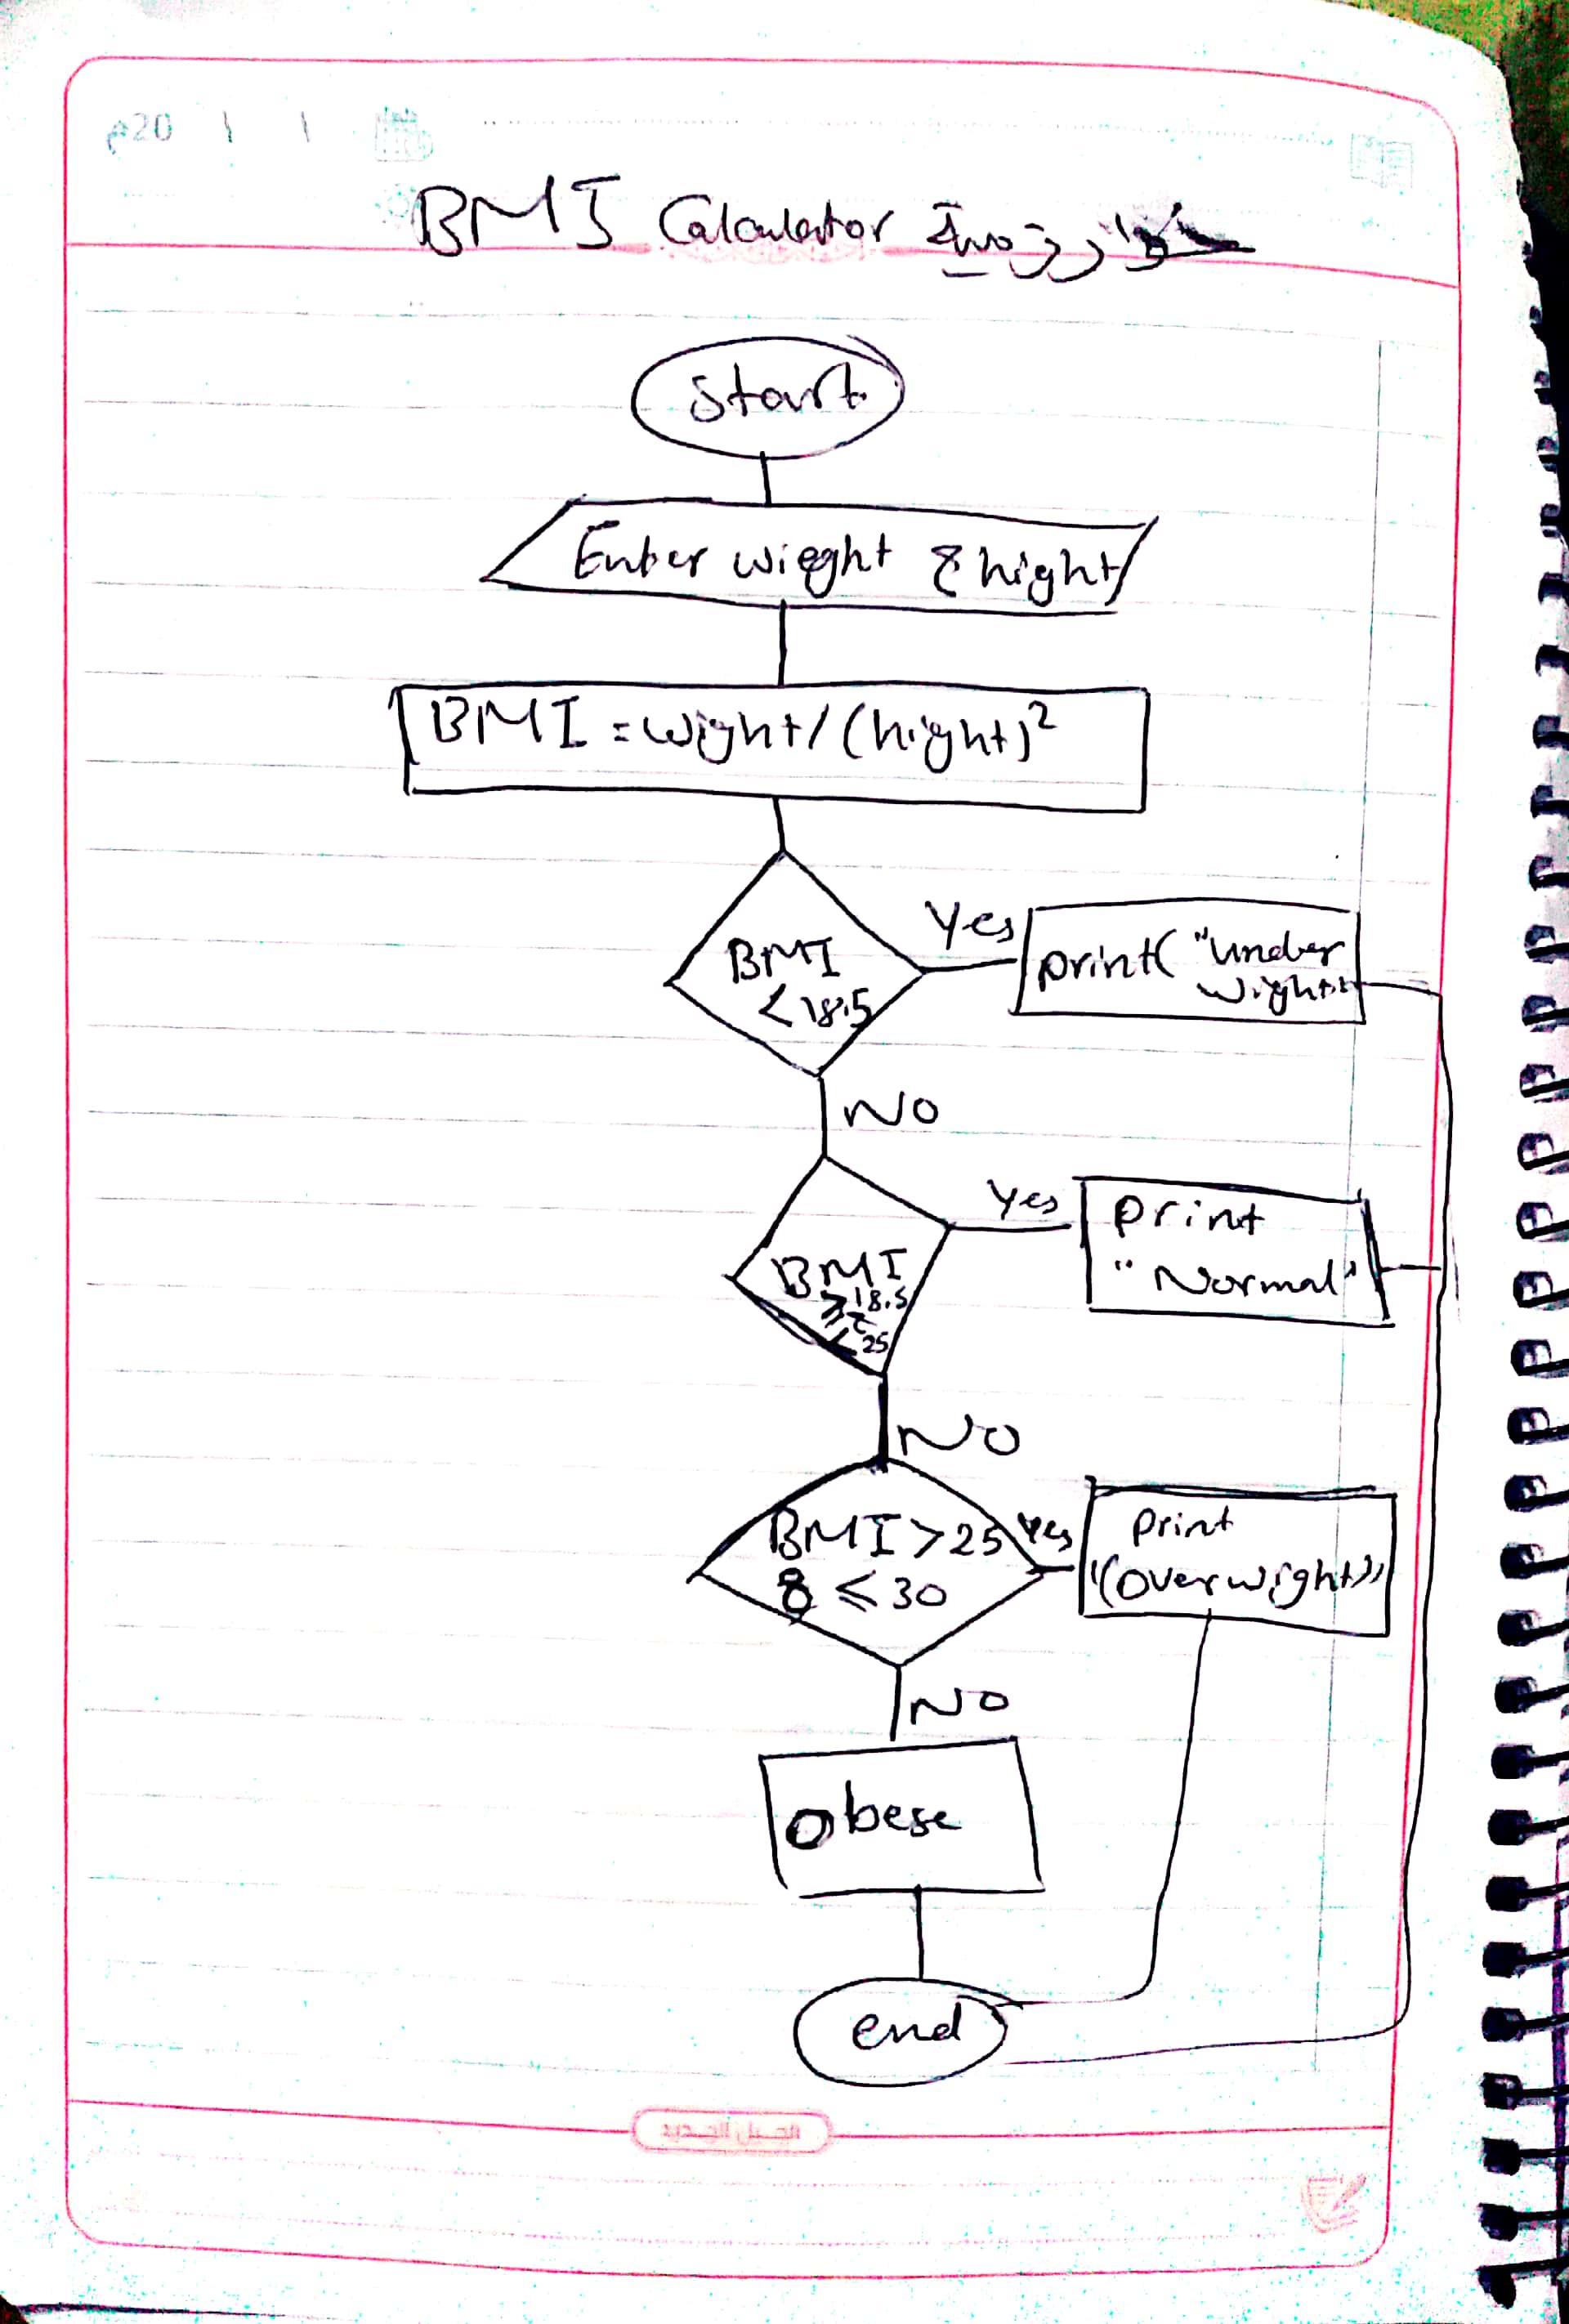 20م / /
BMI Calculator خوارزمية
start
Enter wieght & hight
BMI = wight/(hight)²
BMI
<18.5
Yes
print("under
wight"
NO
BMI
≥18.5
&
<25
Yes
print
"Normal"
NO
BMI>25
& ≤30
Yes
print
"(over wight)"
NO
obese
end
الجيل الجديد